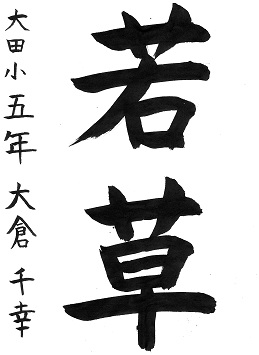 若草
大田小五年 大倉千幸